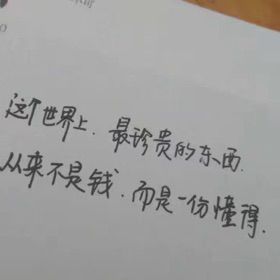 这个世界上.最珍贵的东西.
从来不是钱.而是一份懂得.